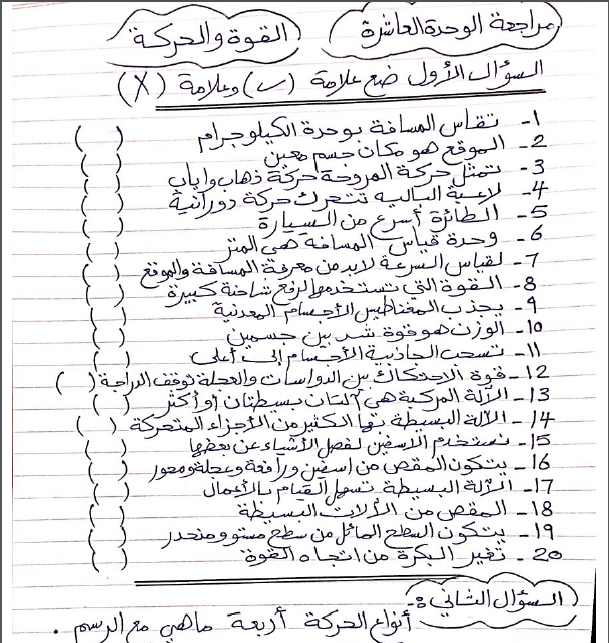 مراجعة الوحدة العاشرة القوة والحركة
السؤال الأول ضع علامة (✓) وعلامة (X)
1- تقاس المسافة بوحدة الكيلوجرام ( )
2- الموقع هو مكان جسم معين ( )
3- تمثل حركة المروحة حركة ذهاب واياب ( )
4- لاعبة الباليه تتحرك حركة دورانية ( )
5- الطائرة أسرع من السيارة ( )
6- وحدة قياس المسافة هي المتر ( )
7- لقياس السرعة لابد من معرفة المسافة والموقع ( )
8- القوة التي تستخدمها لرفع شاحنة كبيرة ( )
9- يجذب المغناطيس الأجسام المعدنية ( )
10- الوزن هو قوة شد بين جسمين ( )
11- تسحب الجاذبية الأجسام إلى أعلى ( )
12- قوة الاحتكاك بين الدواسات والعجلة توقف الدراجة ( )
13- الآلة المركبة هي آلتان بسيطتان أو أكثر ( )
14- الآلة البسيطة بها الكثير من الأجزاء المتحركة ( )
15- نستخدم الاسفين لفصل الأشياء عن بعضها ( )
16- يتكون المقص من إسفين ورافعة وعجلة ومحور ( )
17- الآلة البسيطة تسهل القيام بالأعمال ( )
18- المقص من الآلات البسيطة ( )
19- يتكون السطح المائل من سطح مستو ومنحدر ( )
20- تغير البكرة من اتجاه القوة ( )
السؤال الثاني :-
أنواع الحركة أربعة ماهي مع الرسم .